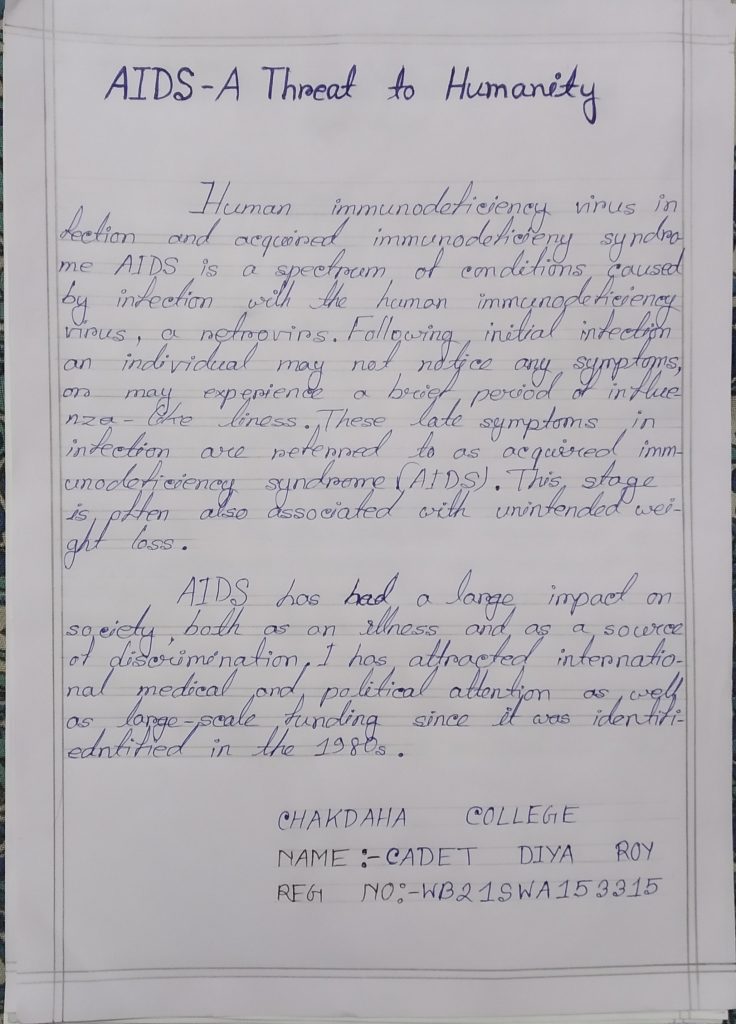 AIDS-A Threat to Humanity
Human immunodeficiency virus in
fection and acquired immunodeficieny syndro-
me AIDS is a spectrum of conditions caused
by infection with the human immunodeficiency
virus, a retrovirs. Following initial infection
an individual may not notice any symptoms,
or may experience a brief period of influe
nza-like liness. These late symptoms in
infection are referred to as acquired imm-
unodeficiency syndrome (AIDS). This stage
is often also associated with unintended wei-
ght loss.
AIDS has had a large impact on
society, both as an illness and as a source
of discrimination. I has attracted internatio-
nal medical and political attention as well
as large-scale funding since it was identifi-
edntified in the 1980s.
CHAKDAHA COLLEGE
NAME :-CADET DIYA ROY
REG NO:-WB21SWA153315